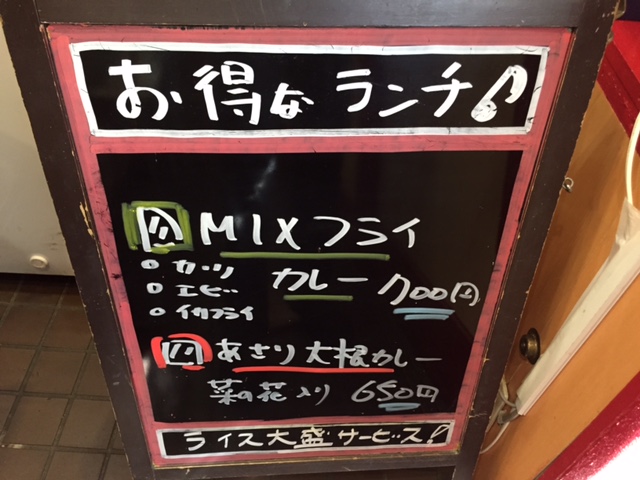 お得なランチ♪
MIXフライ
○カツ
○エビ
○イカフライ
カレー 700円
あさり大根カレー
菜の花入り 650円
ライス大盛サービス!